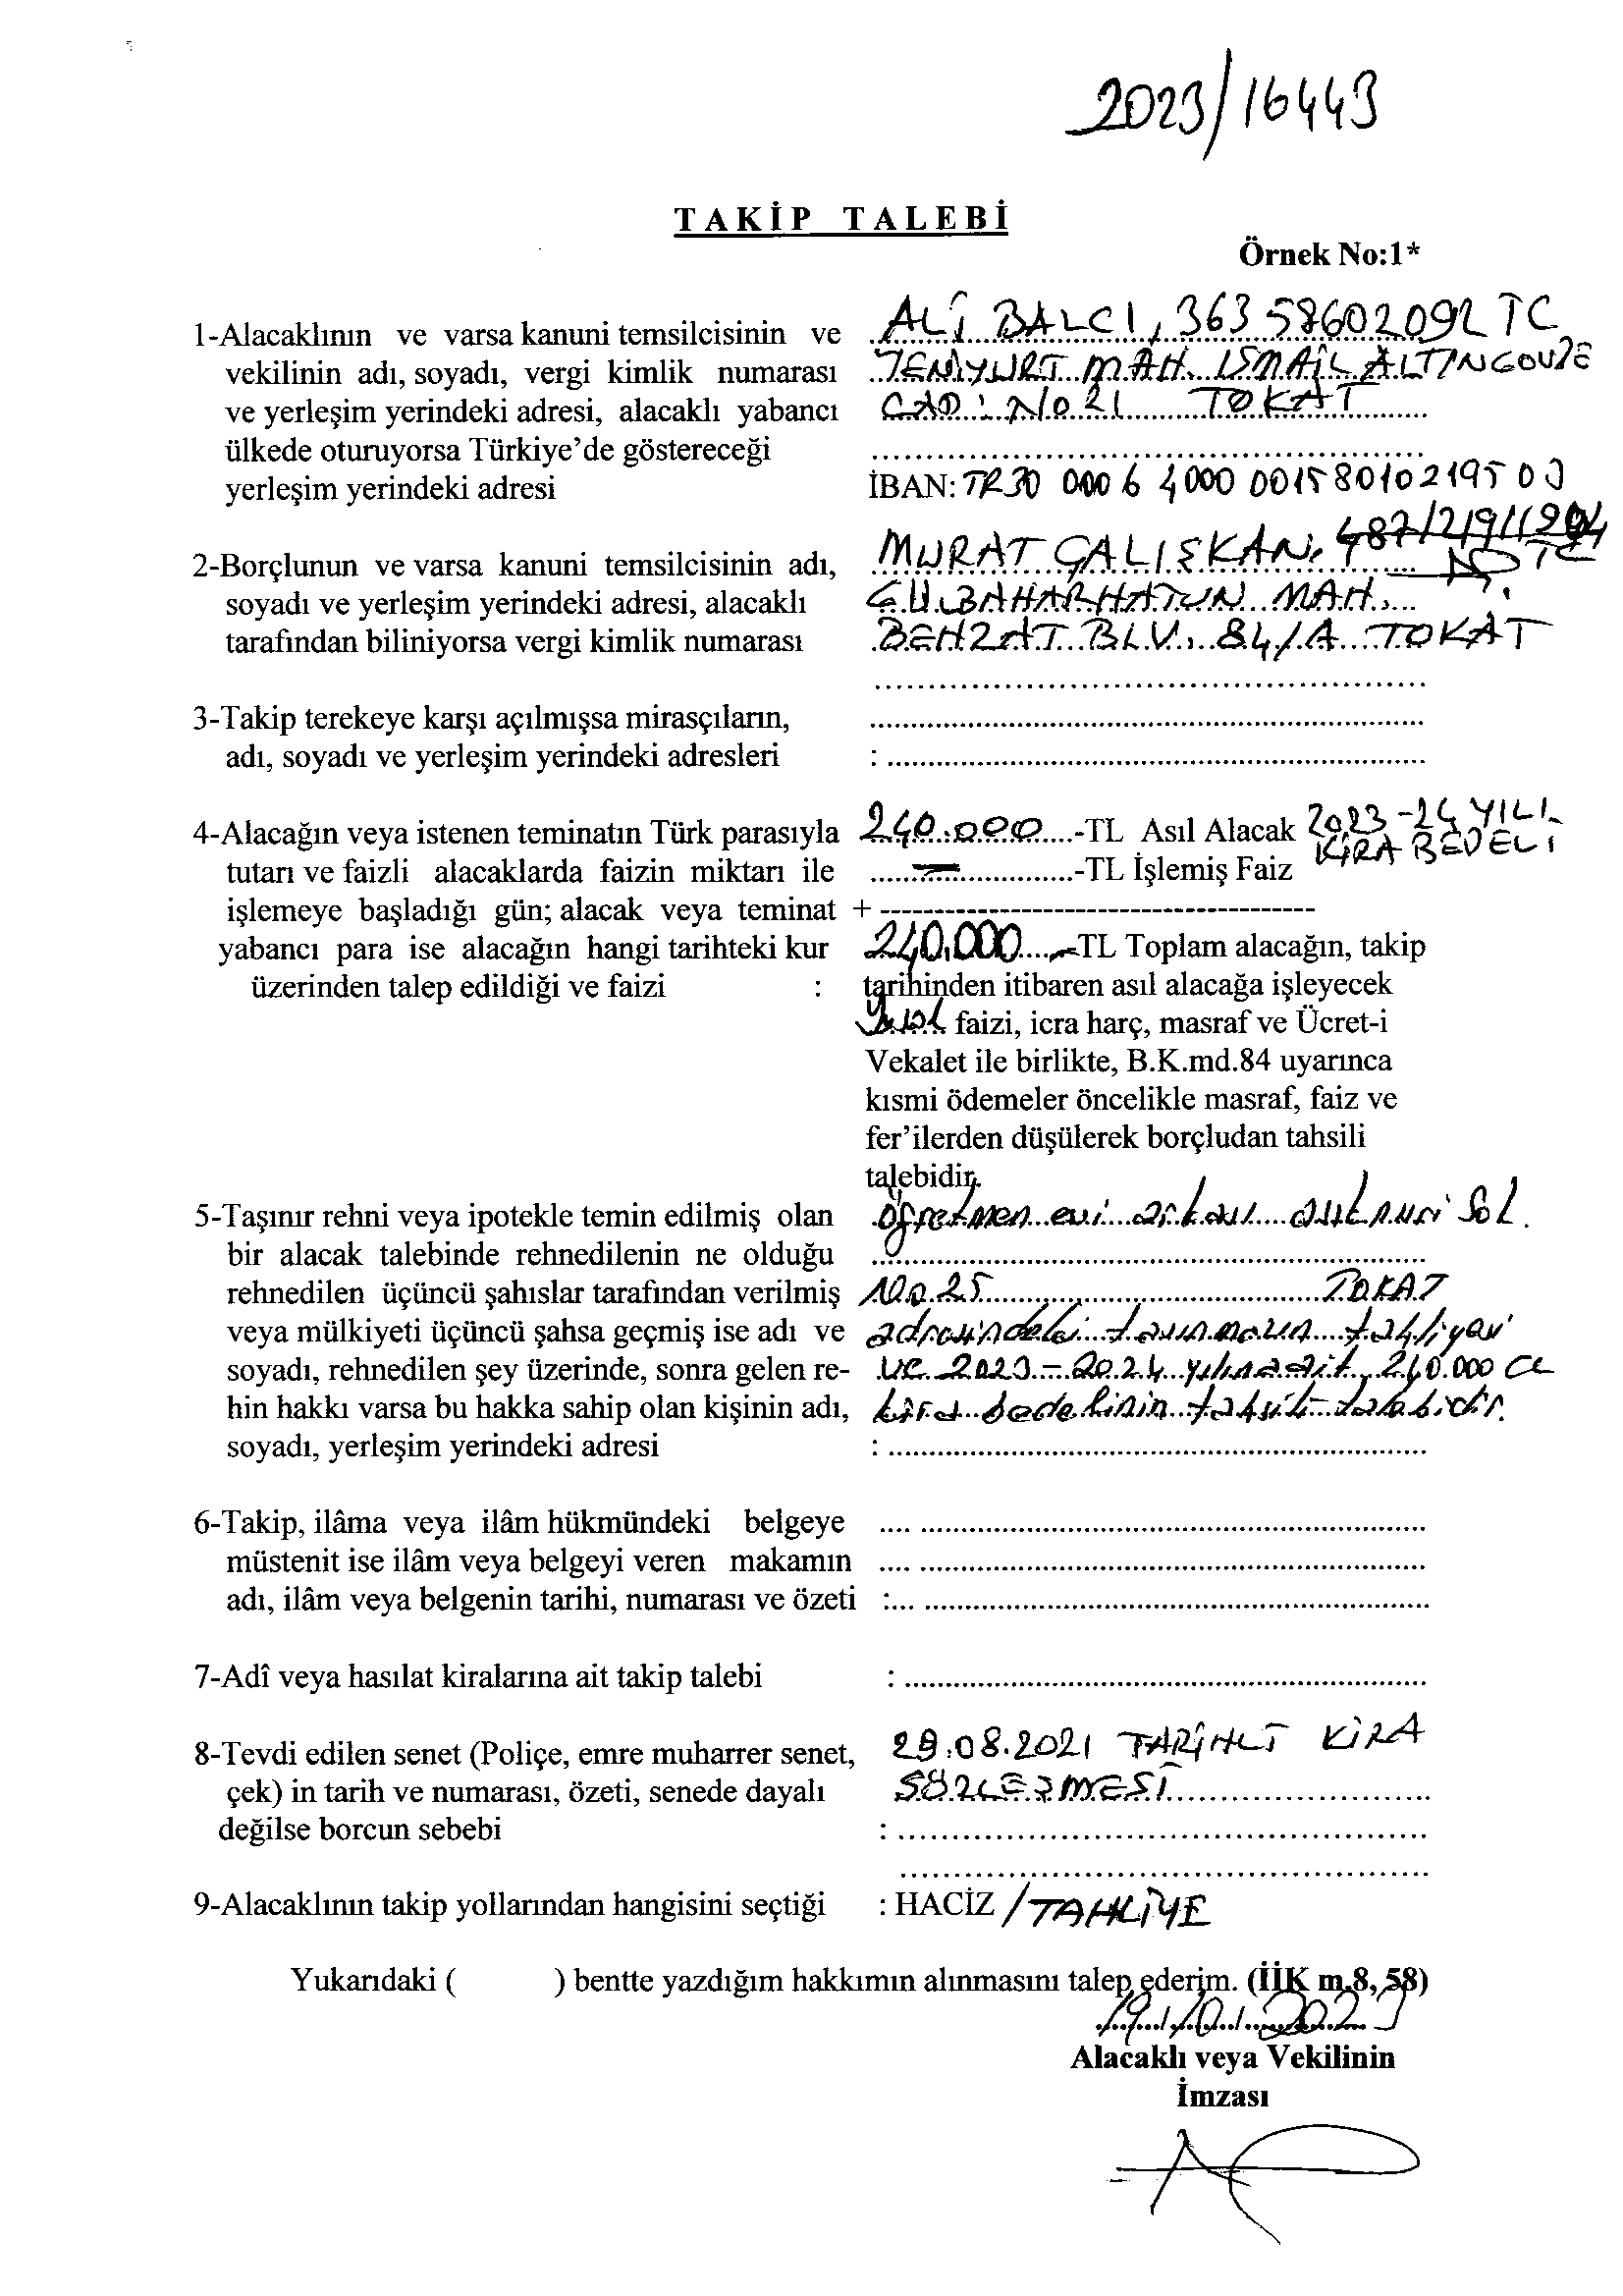 2023/16443
TAKİP TALEBİ
Örnek No:1*
1-Alacaklının ve varsa kanuni temsilcisinin ve
vekilinin adı, soyadı, vergi kimlik numarası
ve yerleşim yerindeki adresi, alacaklı yabancı
ülkede oturuyorsa Türkiye'de göstereceği
yerleşim yerindeki adresi
ALİ BALCI, 36358602092 TC
YENİYURT MAH. İSMAİL ALTINGÖVDE
CAD: No 21 TOKAT
İBAN: TR30 0006 4000 0015 8010 2195 03
2-Borçlunun ve varsa kanuni temsilcisinin adı,
soyadı ve yerleşim yerindeki adresi, alacaklı
tarafından biliniyorsa vergi kimlik numarası
MURAT ÇALIŞKAN. TC
GÜLBAHARHATUN MAH.
BEHZAT BLV. 84/A TOKAT
3-Takip terekeye karşı açılmışsa mirasçıların,
adı, soyadı ve yerleşim yerindeki adresleri :
4-Alacağın veya istenen teminatın Türk parasıyla
tutarı ve faizli alacaklarda faizin miktarı ile
işlemeye başladığı gün; alacak veya teminat
yabancı para ise alacağın hangi tarihteki kur
üzerinden talep edildiği ve faizi :
240.000.-TL Asıl Alacak 2023-24 YILI
KİRA BEDELİ
- -TL İşlemiş Faiz
+ ----------------------------------------
240.000.-TL Toplam alacağın, takip
tarihinden itibaren asıl alacağa işleyecek
Yasal faizi, icra harç, masraf ve Ücret-i
Vekalet ile birlikte, B.K.md.84 uyarınca
kısmi ödemeler öncelikle masraf, faiz ve
fer'ilerden düşülerek borçludan tahsili
talebidir.
5-Taşınır rehni veya ipotekle temin edilmiş olan
bir alacak talebinde rehnedilenin ne olduğu
rehnedilen üçüncü şahıslar tarafından verilmiş
veya mülkiyeti üçüncü şahsa geçmiş ise adı ve
soyadı, rehnedilen şey üzerinde, sonra gelen re-
hin hakkı varsa bu hakka sahip olan kişinin adı,
soyadı, yerleşim yerindeki adresi :
öğretmen evi arkası Sok.
No.25 TOKAT
adresindeki taşınmazın tahliyesi
ve 2023-2024 yılına ait 240.000 TL
kira bedelinin tahsili talebidir.
6-Takip, ilâma veya ilâm hükmündeki belgeye
müstenit ise ilâm veya belgeyi veren makamın
adı, ilâm veya belgenin tarihi, numarası ve özeti :
7-Adî veya hasılat kiralarına ait takip talebi :
8-Tevdi edilen senet (Poliçe, emre muharrer senet,
çek) in tarih ve numarası, özeti, senede dayalı
değilse borcun sebebi :
29.08.2021 TARİHLİ KİRA
SÖZLEŞMESİ
9-Alacaklının takip yollarından hangisini seçtiği : HACİZ / TAHLİYE
Yukarıdaki ( ) bentte yazdığım hakkımın alınmasını talep ederim. (İİK m.8, 58)
Alacaklı veya Vekilinin
İmzası